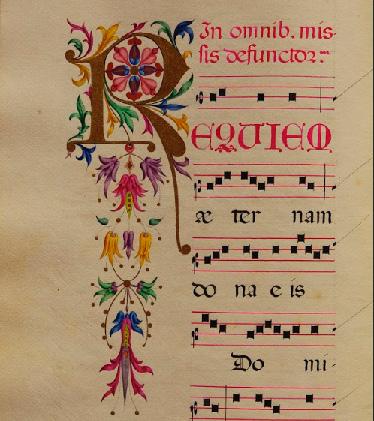 In omnib. mis-
sis defunctor̅.
REQUIEM
æ ter nam
do na e is
Do mi-